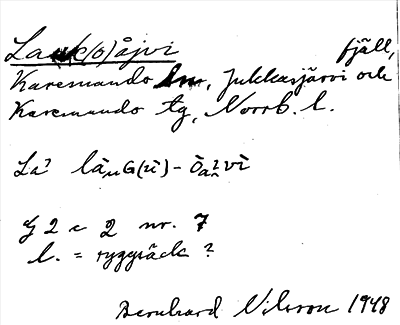 Lauk(o)åjvi fjäll,
Karesuando lm, Jukkasjärvi och
Karesuando tg, Norrb. l.
La?
J 2 c 2 nr. 7
l. = ryggsäck ?
Bernhard Nilsson 1948